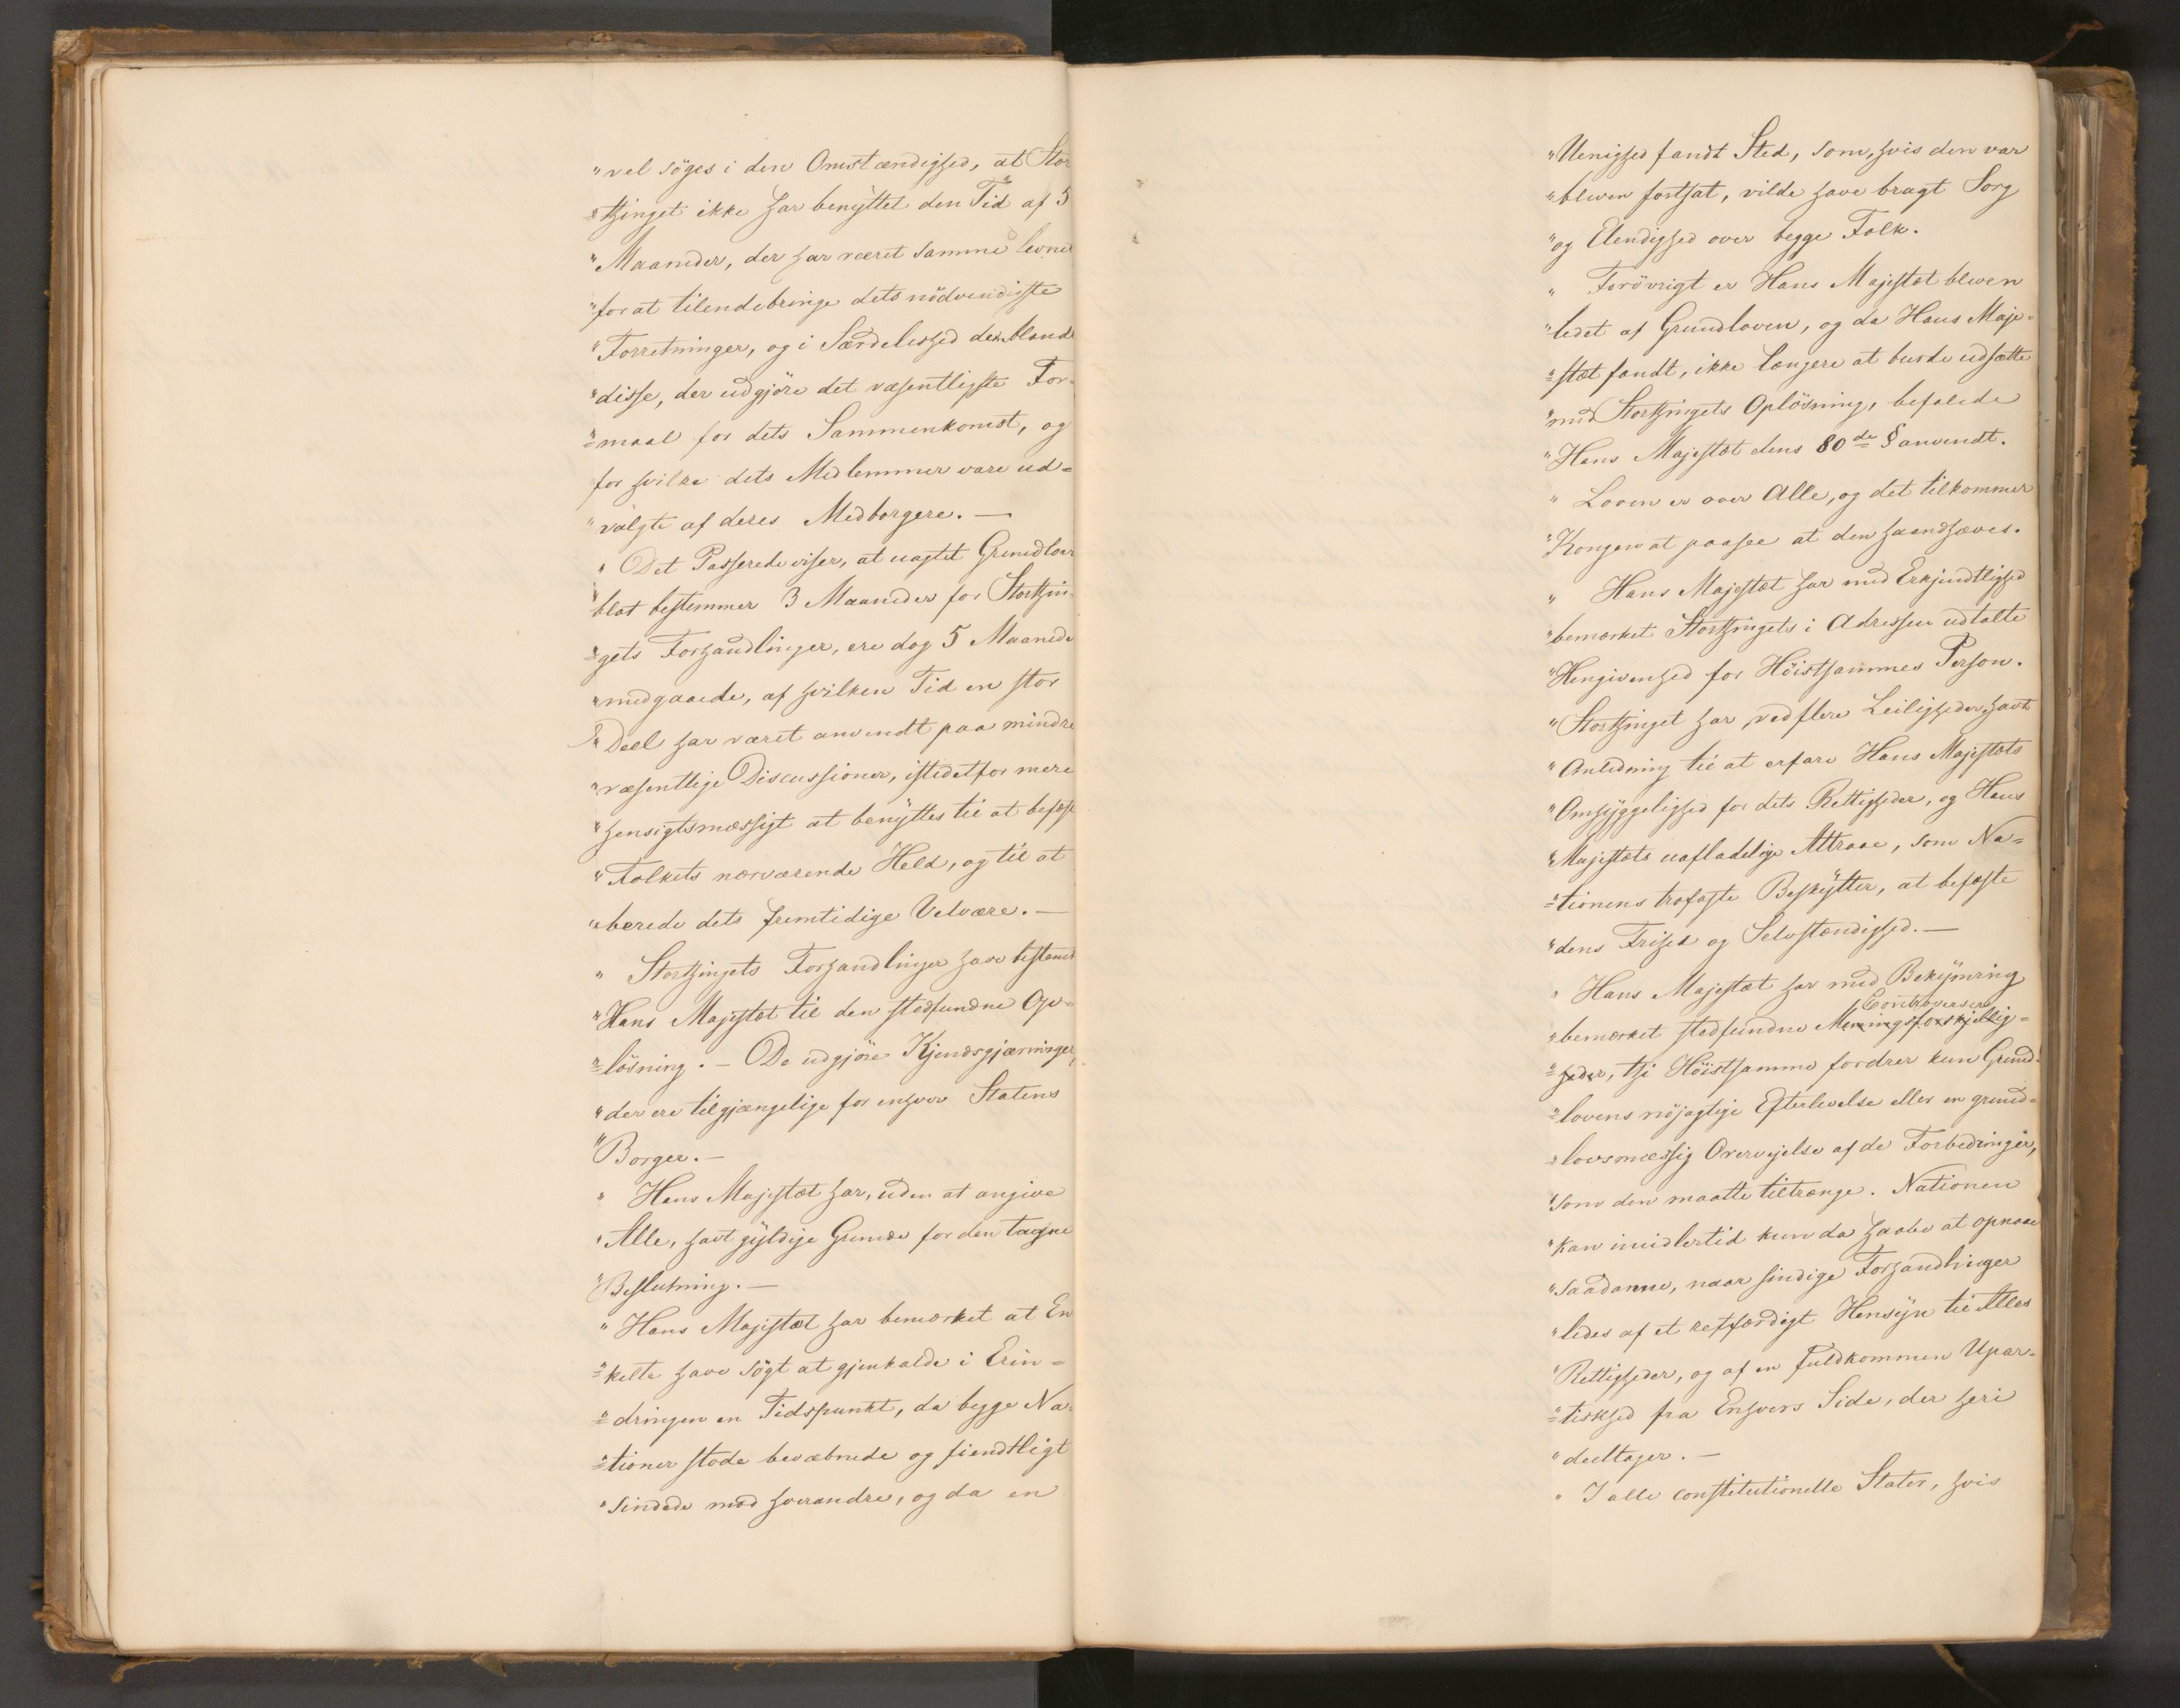 "vel söges i den Omstændighed, at Stor
"=thinget ikke har benyttet den Tid af 5
"Maaneder, der har været samme levnet
"for at tilendebringe dets nödvendigste
"Forretninger, og i Særdeleshed de iblandt
"disse, der udgjöre det væsentligste For=
"=maal for dets Sammenkomst, og
for hvilke dets Medlemmer vare ud=
"valgte af deres Medborgere. —
" Det Passerede viser, at uagtet Grundlov
"blot bestemmer 3 Maaneder for Storthin=
"=gets Forhandlinger, ere dog 5 Maaneder
"medgaaede, af hvilken Tid en stor
"Deel har været anvendt paa mindre
"væsentlige Discussioner, istedetfor mere
"hensigtsmæssigt at benyttes til at befæste
"Folkets nærværende Held, og til at
"berede dets fremtidige Velvære. —
" Storthingets Forhandlinger have bestemt
"Hans Majestæt til den stedfundne Op=
"=lösning. — De udgjöre Kjendsgjerninger,
"der ere tilgjængelige for enhver Statens
"Borger. —
" Hans Majestæt har, uden at angive
"Alle, havt gyldige Grunde for den tagne
"Beslutning. —
" Hans Majestæt har bemærket at En
"=kelte have sögt at gjenkalde i Erin=
"=dringen en Tidspunkt, da begge Na=
"=tioner stode bevæbnede og fiendtligt
"sindede mod hverandre, og da en
"Uenighed fandt Sted, som, hvis den var
"bleven fortsat, vilde have bragt Sorg
"og Elendighed over begge Folk.
" Forövrigt er Hans Majestæt bleven
"ledet af Grundloven, og da Hans Maje=
"=stæt fandt, ikke længere at burde udsætte
"med Storthingets Oplösning, befalede
"Hans Majestæt dens 80de § anvendt.
" Loven er over Alle, og det tilkommer
"Kongen at paasee at den haandhæves.
" Hans Majestæt har med Erkjendtlighed
"bemærket Storthingets i Adressen udtalte
"Hengivenhed for Höistsammes Person.
"Storthinget har, ved flere Leiligheder, havt
"Anledning til at erfare Hans Majestæts
"Omhyggelighed for dets Rettigheder, og Hans
"Majestæts uafladelige Attraae, som Na=
"=tionens trofaste Beskytter, at befæste
"dens Frihed og Selvstændighed. —
" Hans Majestæt har med Bekymring
Controverser
"bemærket stedfundne Meningsforskjellig=
"=heder, thi Höistsamme fordrer kun Grund=
"=lovens nöjagtige Efterlevelse eller en grund=
"=lovsmæssig Overvejelse af de Forbedringer,
"som den maatte tiltrænge. Nationen
"kan imidlertid kun da haabe at opnaae
"saadanne, naar sindige Forhandlinger
"ledes af et retfærdigt Hensyn til Alles
"Rettigheder, og af en fuldkommen Upar=
"=tiskhed fra Enhvers Side, der heri
"deeltager. —
" I alle constitutionelle Stater, hvis